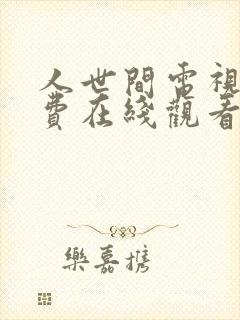 人世間電視
費在綫觀看
樂嘉攜